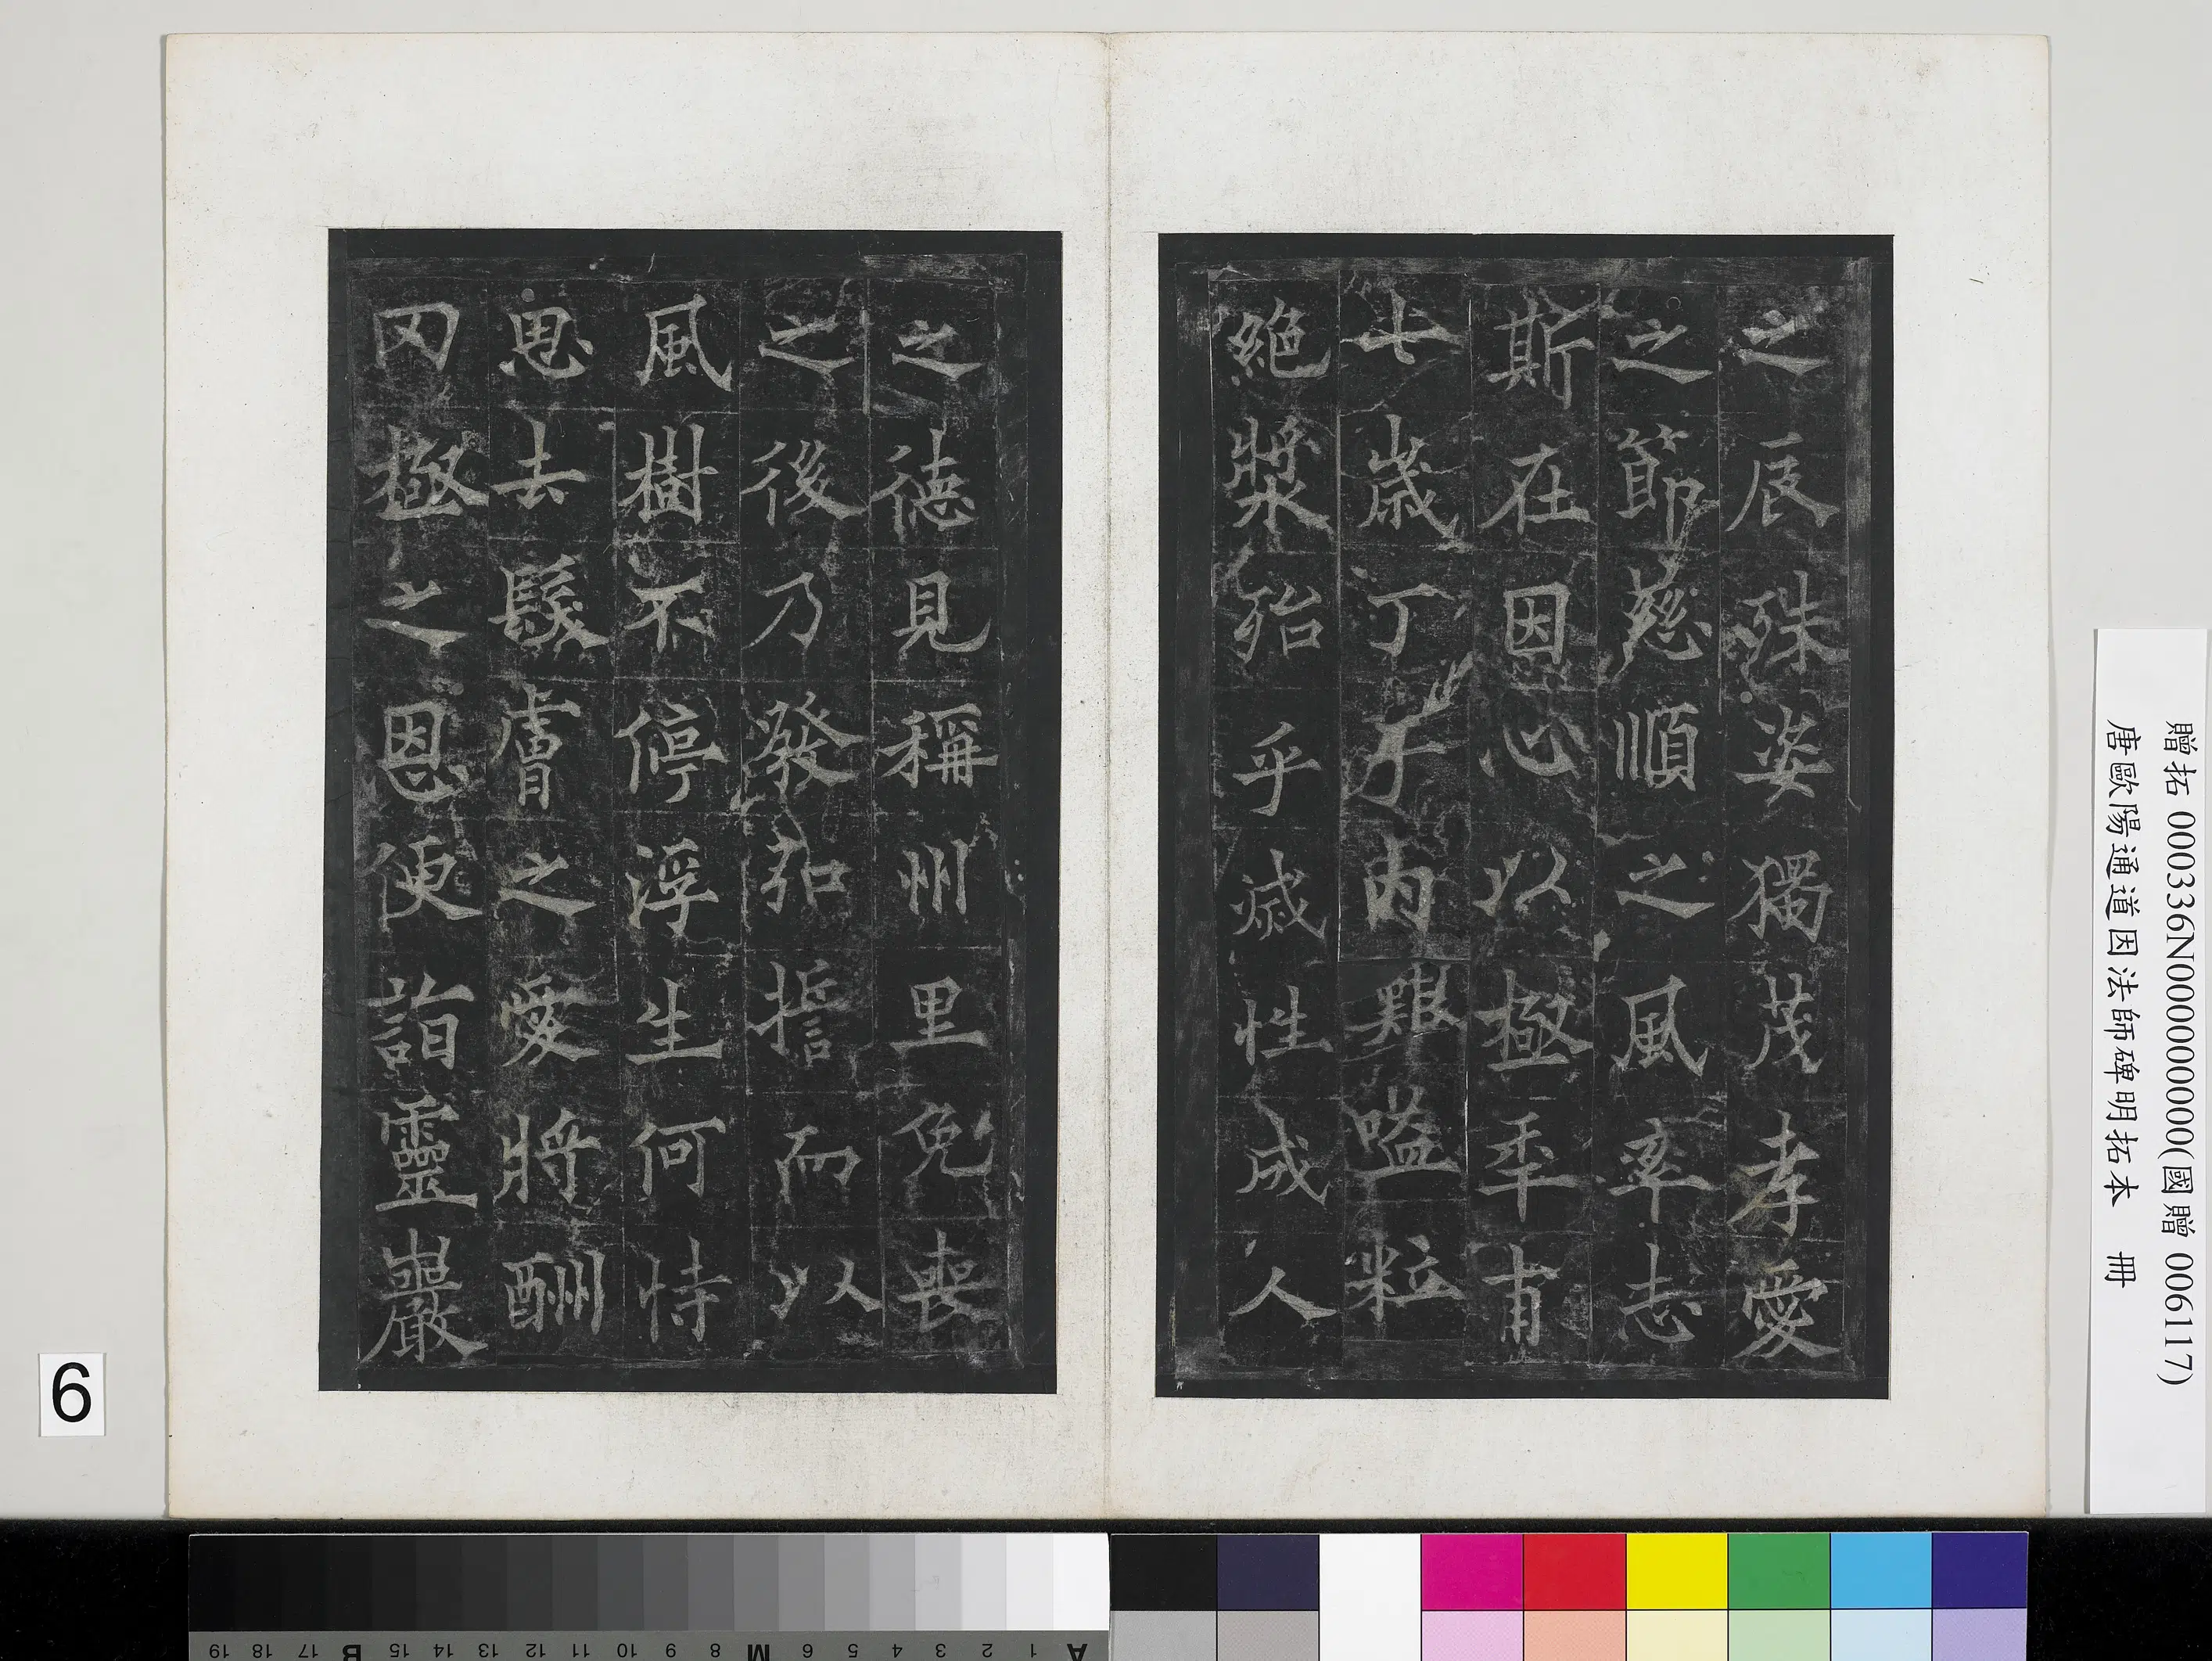 之辰殊姿獨茂孝愛
之節慈順之風率志
斯在因心以極年甫
七歲丁于內艱嗌粒
絕漿殆乎滅性成人
之德見稱州里免喪
之後乃發弘誓而以
風樹不停浮生何恃
思去髮膚之愛將酬
罔極之恩便詣靈巖
贈拓 000336N000000000(國贈 006117)
唐歐陽通道因法師碑明拓本 冊
6
A 1 2 3 4 5 6 M 8 9 10 11 12 13 14 15 B 17 18 19